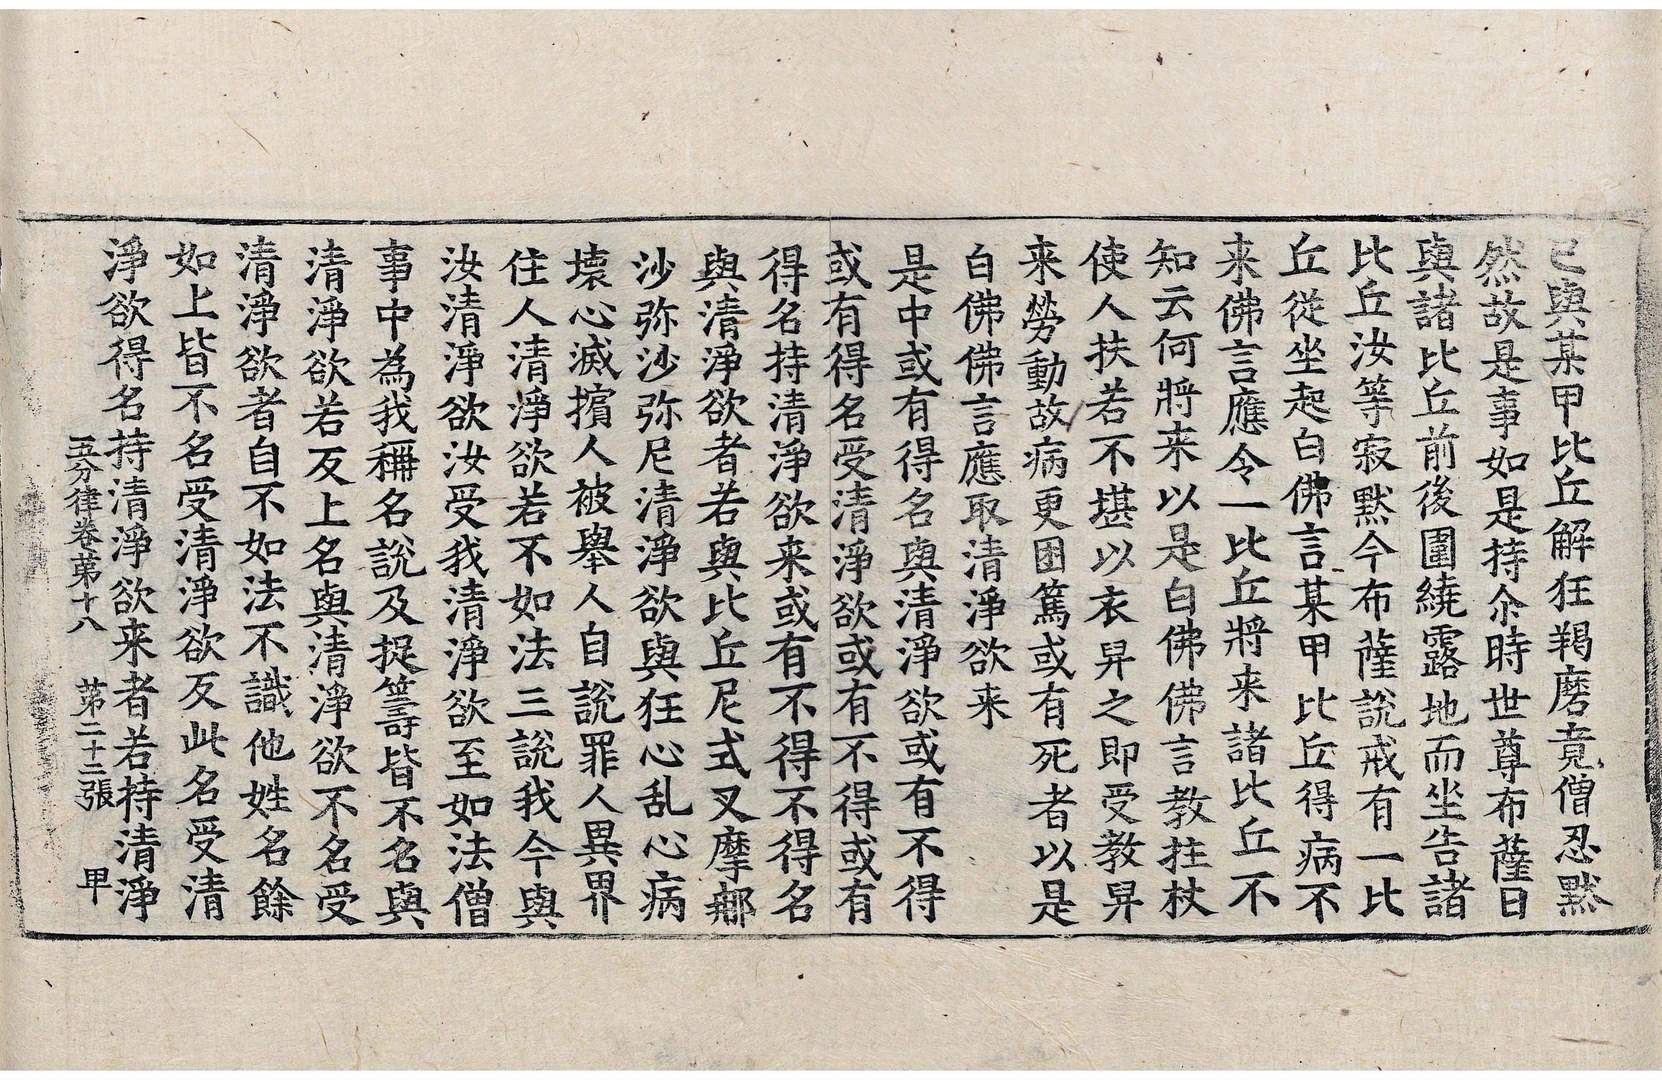 已與某甲比丘解狂羯磨竟僧忍默
然故是事如是持尒時世尊布薩日
與諸比丘前後圍繞露地而坐告諸
比丘汝等寂默今布薩說戒有一比
丘從坐起白佛言某甲比丘得病不
来佛言應令一比丘將来諸比丘不
知云何將来以是白佛佛言教拄杖
使人扶若不堪以衣舁之即受教舁
来勞動故病更困篤或有死者以是
白佛佛言應取清淨欲来
是中或有得名與清淨欲或有不得
或有得名受清淨欲或有不得或有
得名持清淨欲来或有不得不得名
與清淨欲者若與比丘尼式叉摩𨙻
沙弥沙弥尼清淨欲與狂心乱心病
壞心滅擯人被舉人自說罪人異界
住人清淨欲若不如法三說我今與
汝清淨欲汝受我清淨欲至如法僧
事中為我稱名說及捉籌皆不名與
清淨欲若反上名與清淨欲不名受
清淨欲者自不如法不識他姓名餘
如上皆不名受清淨欲反此名受清
淨欲得名持清淨欲来者若持清淨
五分律卷第十八 苐二十二張 甲